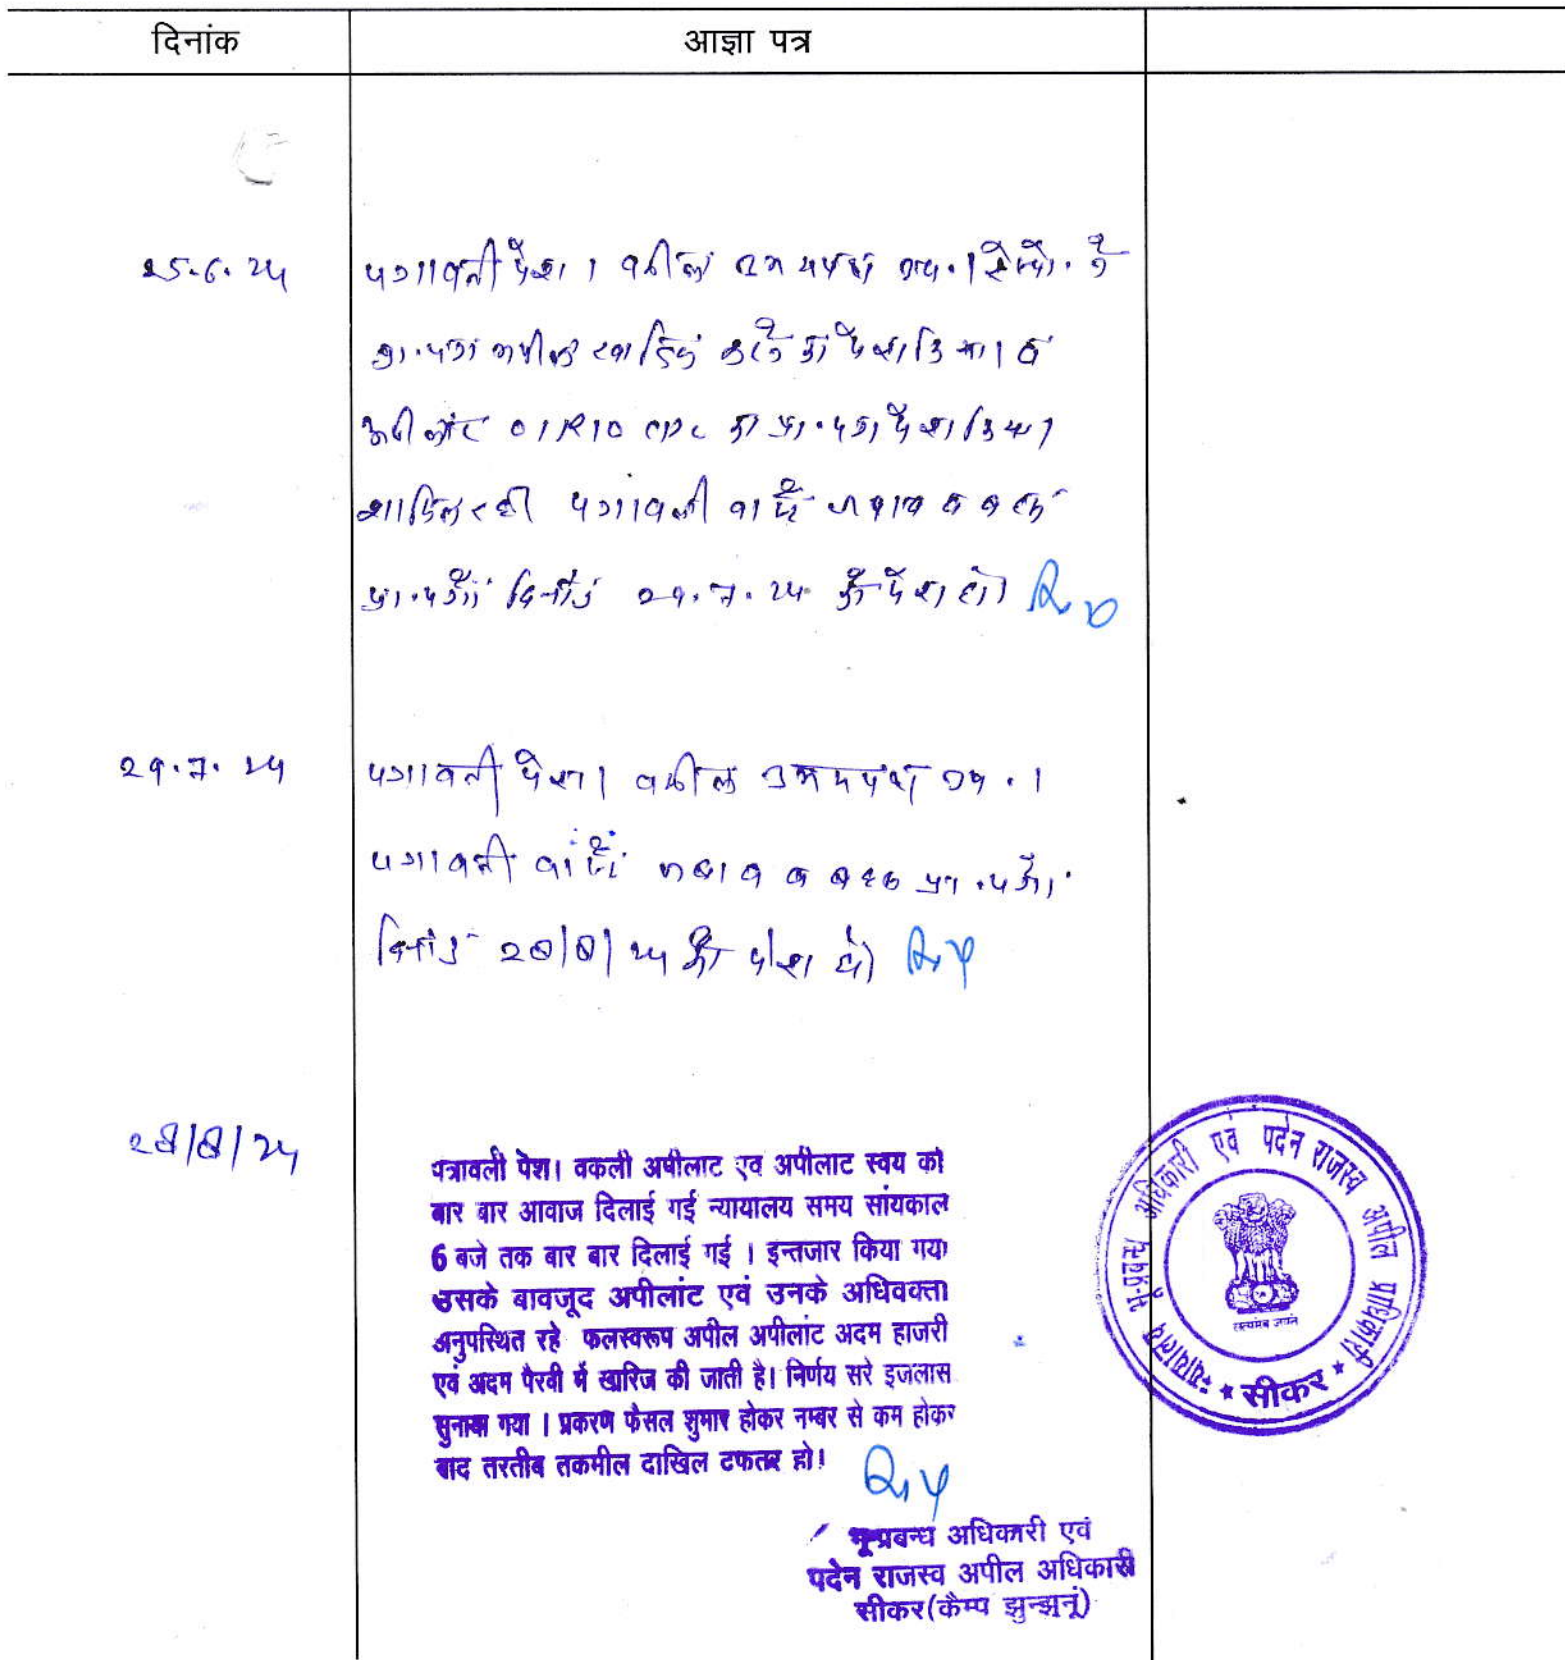 दिनांक
आज्ञा पत्र
25.6.24
पत्रावली पेश। वकील उभयपक्ष उप.। रेस्पो. ने
प्रा.पत्र अपील खारिज करने का पेश किया। व
अपीलांट 01R10 CPC का प्रा.पत्र पेश किया
शामिल रही पत्रावली वास्ते जवाब व बहस
प्रा.पत्रों दिनांक 29.7.24 को पेश हो।
29.7.24
पत्रावली पेश। वकील उभयपक्ष उप.।
पत्रावली वास्ते जवाब व बहस प्रा.पत्रों
दिनांक 28/8/24 को पेश हो।
28/8/24
पत्रावली पेश। वकली अपीलाट एव अपीलाट स्वय को
बार बार आवाज दिलाई गई न्यायालय समय सांयकाल
6 बजे तक बार बार दिलाई गई । इन्तजार किया गया
उसके बावजूद अपीलांट एवं उनके अधिवक्ता
अनुपस्थित रहे फलस्वरूप अपील अपीलांट अदम हाजरी
एवं अदम पैरवी में खारिज की जाती है। निर्णय सरे इजलास
सुनाया गया । प्रकरण फैसल शुमार होकर नम्बर से कम होकर
बाद तरतीब तकमील दाखिल दफतर हो।
भू-प्रबन्ध अधिकारी एवं
पदेन राजस्व अपील अधिकारी
सीकर(कैम्प झुन्झुनूं)
न्यायालय भू-प्रबन्ध अधिकारी एवं पदेन राजस्व अपील प्राधिकारी
सत्यमेव जयते
* सीकर *